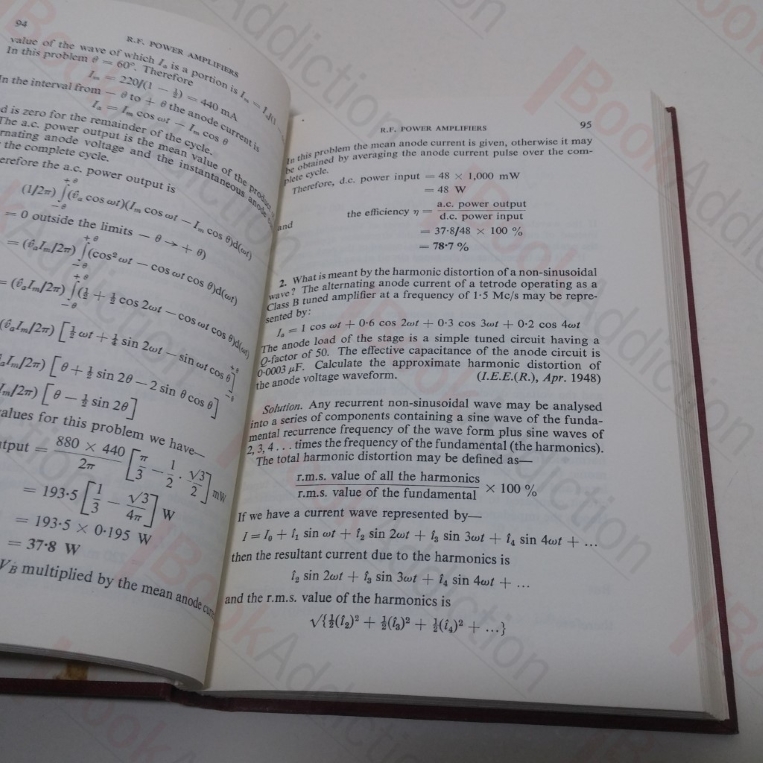 94
R.F. POWER AMPLIFIERS
value of the wave of which Iₐ is a portion is Iₘ =
In this problem θ = 60°. Therefore
Iₘ = 220/(1 − ½) = 440 mA
In the interval from − θ to + θ the anode current is
Iₐ = Iₘ cos ωt − Iₘ cos θ
d is zero for the remainder of the cycle.
The a.c. power output is the mean value of the product
rnating anode voltage and the instantaneous anode
the complete cycle.
erefore the a.c. power output is
(1/2π) ∫₋θ⁺θ (êₐ cos ωt)(Iₘ cos ωt − Iₘ cos θ)d(ωt)
= 0 outside the limits − θ → + θ)
= (êₐIₘ/2π) ∫₋θ⁺θ (cos² ωt − cos ωt cos θ)d(ωt)
= (êₐIₘ/2π) ∫₋θ⁺θ (½ + ½ cos 2ωt − cos ωt cos θ)d(ωt)
(êₐIₘ/2π) [½ ωt + ¼ sin 2ωt − sin ωt cos θ]₋θ⁺θ
ₐIₘ/2π) [θ + ½ sin 2θ − 2 sin θ cos θ]
Iₘ/2π) [θ − ½ sin 2θ]
alues for this problem we have—
tput = 880 × 440 / 2π [π/3 − 1/2 . √3/2] mW
= 193·5 [1/3 − √3/4π] W
= 193·5 × 0·195 W
= 37·8 W
V_B multiplied by the mean anode
R.F. POWER AMPLIFIERS 95
In this problem the mean anode current is given, otherwise it may
be obtained by averaging the anode current pulse over the com-
plete cycle.
Therefore, d.c. power input = 48 × 1,000 mW
= 48 W
and
the efficiency η = a.c. power output / d.c. power input
= 37·8/48 × 100 %
= 78·7 %
2. What is meant by the harmonic distortion of a non-sinusoidal
wave? The alternating anode current of a tetrode operating as a
Class B tuned amplifier at a frequency of 1·5 Mc/s may be repre-
sented by:
Iₐ = 1 cos ωt + 0·6 cos 2ωt + 0·3 cos 3ωt + 0·2 cos 4ωt
The anode load of the stage is a simple tuned circuit having a
Q-factor of 50. The effective capacitance of the anode circuit is
0·0003 μF. Calculate the approximate harmonic distortion of
the anode voltage waveform. (I.E.E.(R.), Apr. 1948)
Solution. Any recurrent non-sinusoidal wave may be analysed
into a series of components containing a sine wave of the funda-
mental recurrence frequency of the wave form plus sine waves of
2, 3, 4 . . . times the frequency of the fundamental (the harmonics).
The total harmonic distortion may be defined as—
r.m.s. value of all the harmonics / r.m.s. value of the fundamental × 100 %
If we have a current wave represented by—
I = I₀ + î₁ sin ωt + î₂ sin 2ωt + î₃ sin 3ωt + î₄ sin 4ωt + ...
then the resultant current due to the harmonics is
î₂ sin 2ωt + î₃ sin 3ωt + î₄ sin 4ωt + ...
and the r.m.s. value of the harmonics is
√{½(î₂)² + ½(î₃)² + ½(î₄)² + ...}